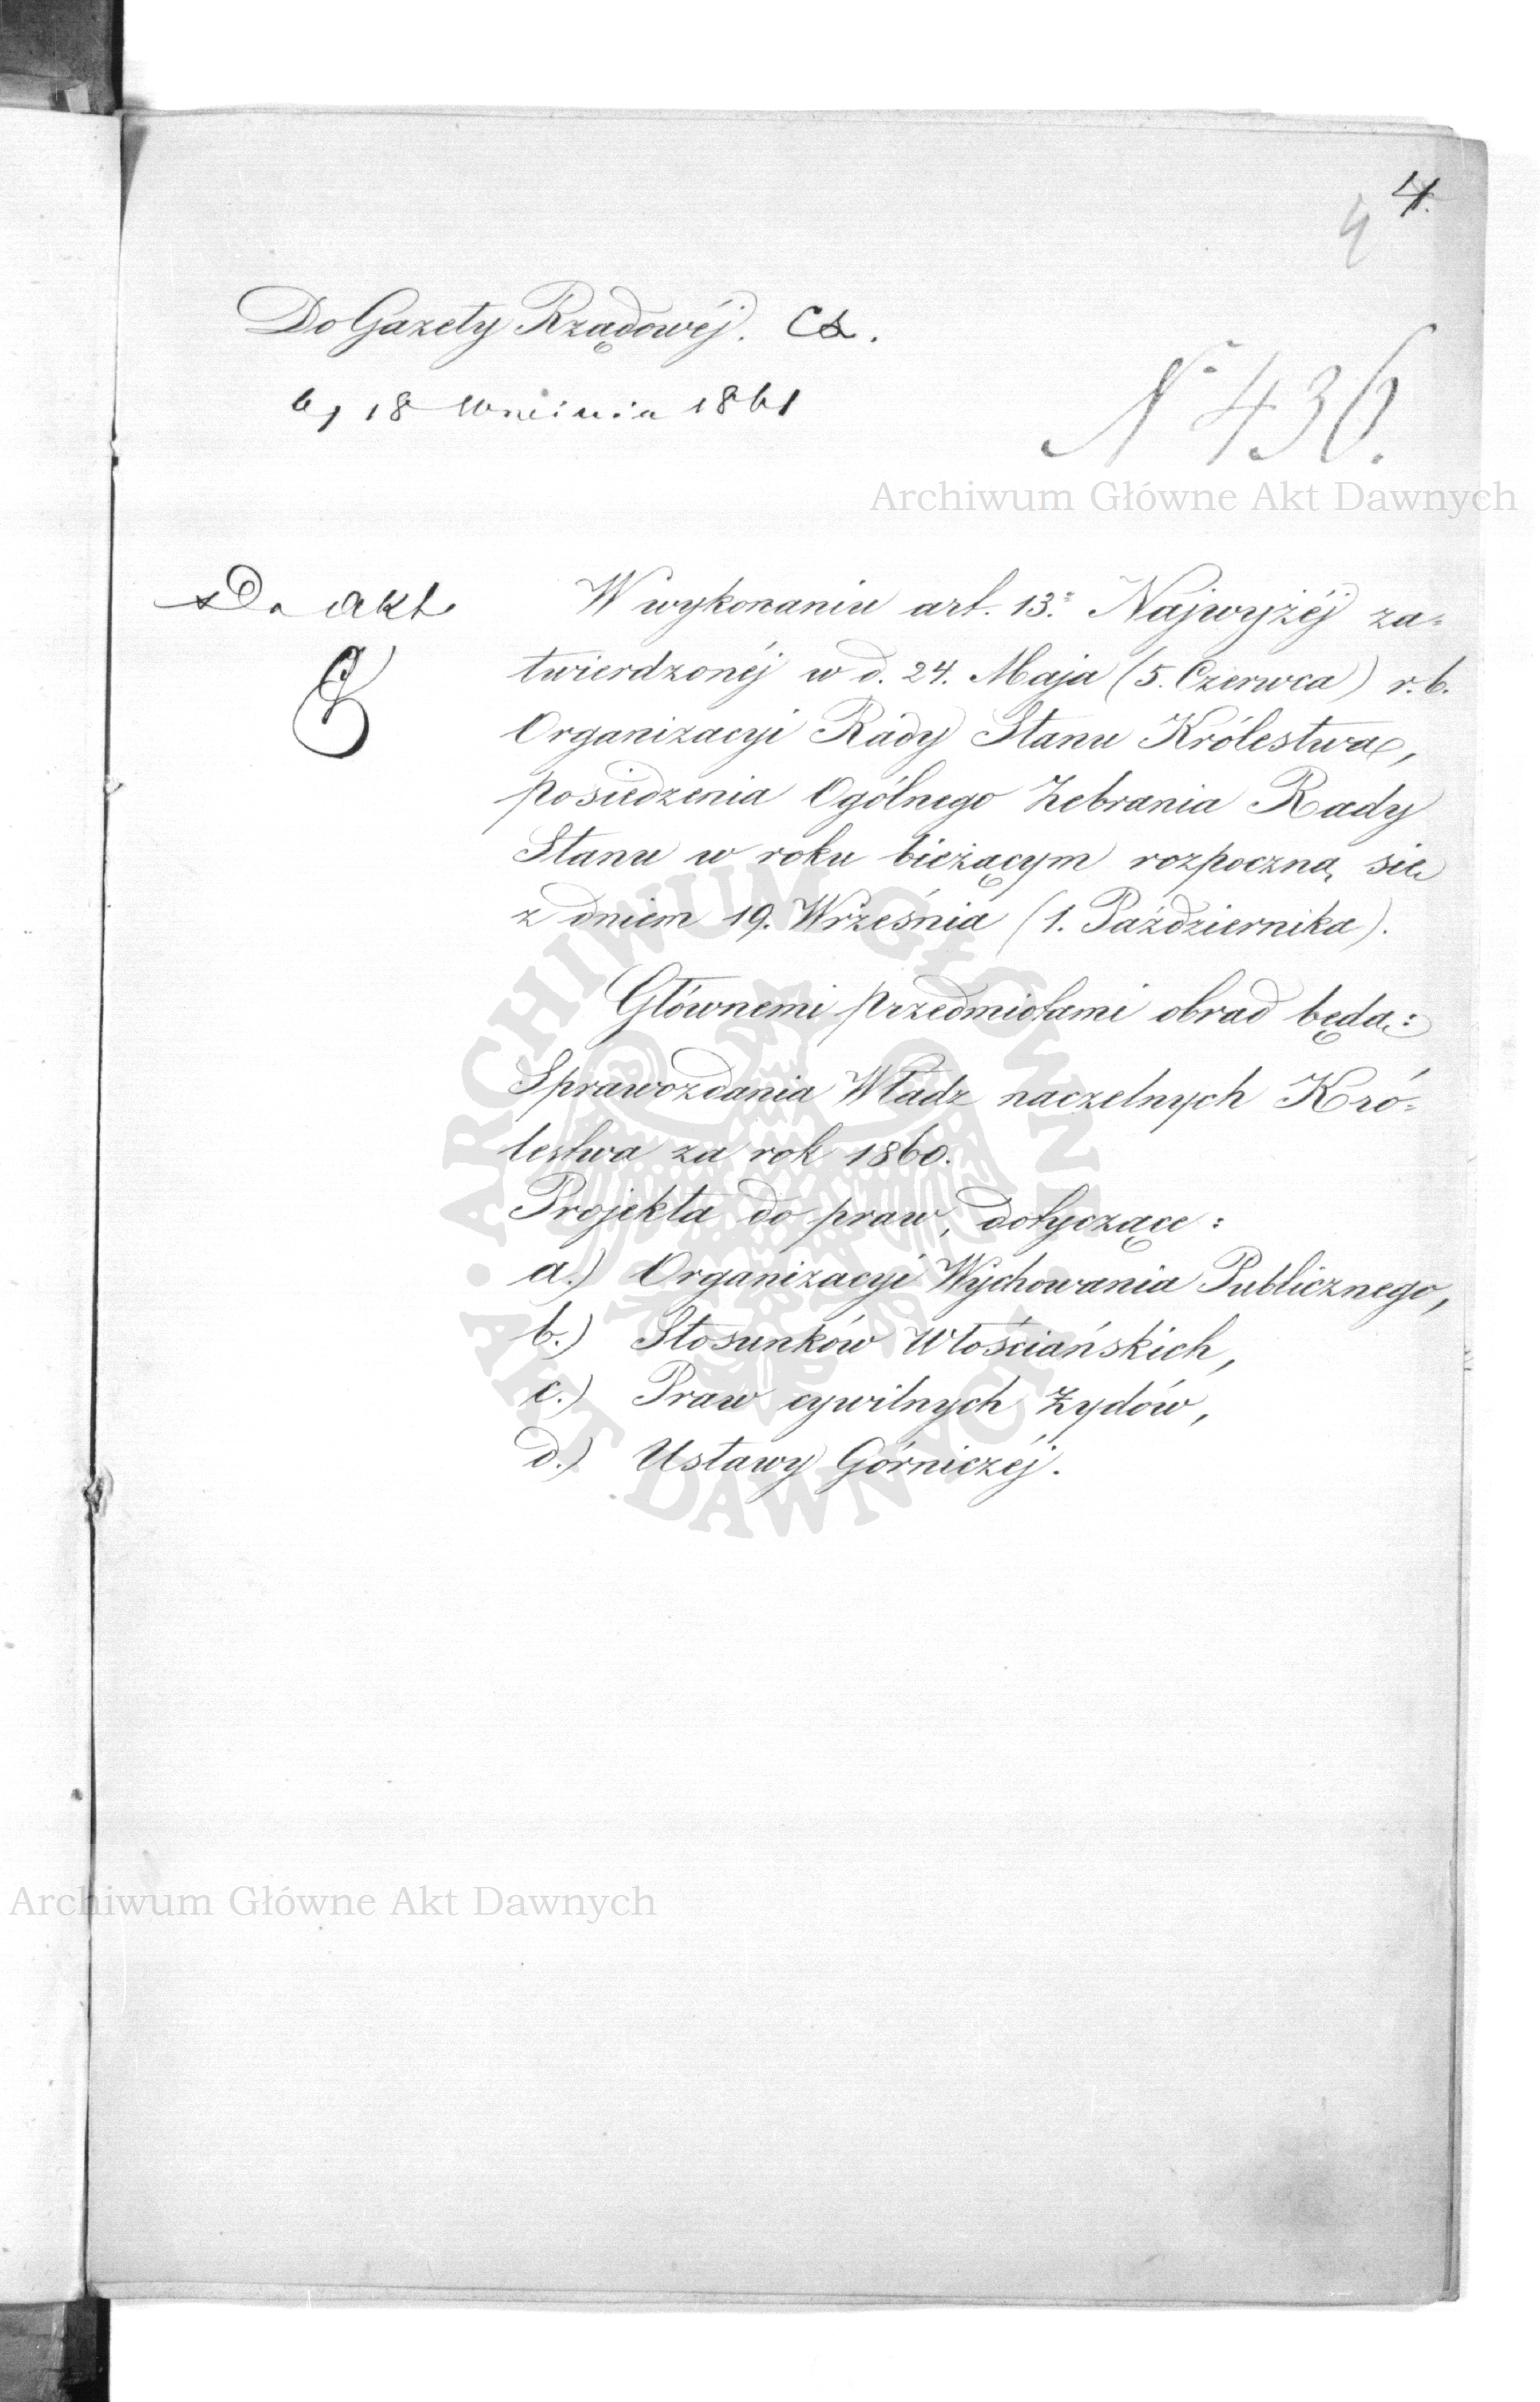 4.
4
Do Gazety Rządowéj.
6/18 Września 1861
N 436.
Archiwum Główne Akt Dawnych
Do akt
W wykonaniu art. 13. Najwyżéj za=
twierdzonéj w d. 24. Maja (5. Czerwca) r. b.
Organizacyi Rady Stanu Królestwa,
posiedzenia Ogólnego Zebrania Rady
Stanu w roku bieżącym rozpoczną się
z dniem 19. Września (1. Października).
Głównemi przedmiotami obrad będą:
Sprawozdania Władz naczelnych Kró=
lestwa za rok 1860.
Projekta do praw, dotyczące:
a.) Organizacyi Wychowania Publicznego,
b.) Stosunków Włościańskich,
c.) Praw cywilnych Żydów,
d.) Ustawy Górniczéj.
ARCHIWUM GŁÓWNE AKT DAWNYCH
Archiwum Główne Akt Dawnych